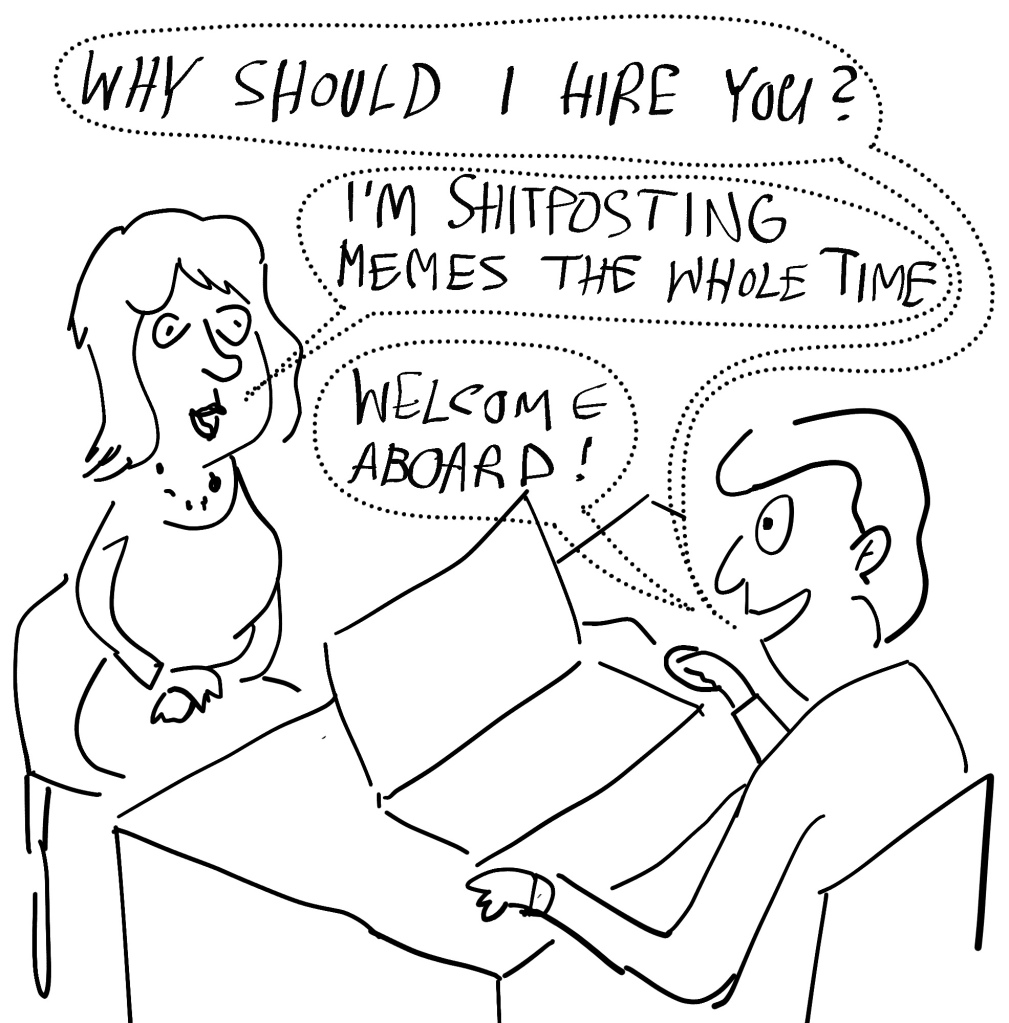 WHY SHOULD I HIRE YOU?
I'M SHITPOSTING
MEMES THE WHOLE TIME
WELCOME
ABOARD!